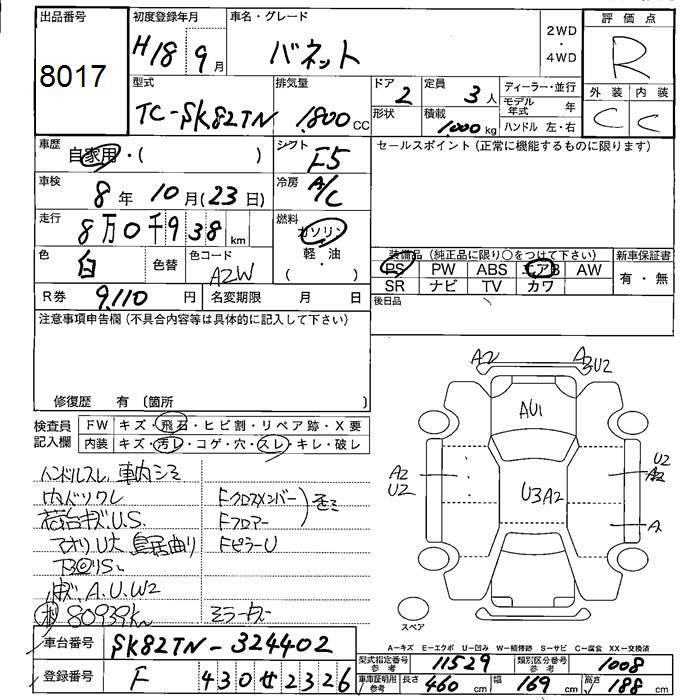 出品番号
8017
初度登録年月
H18 9月
車名・グレード
バネット
2WD
・
4WD
評価点
R
外装 内装
C C
型式
TC-SK82TN
排気量
1,800 CC
ドア
2
形状
定員
3人
積載
1,000 kg
ディーラー・並行
モデル年式 年
ハンドル 左・右
車歴
自家用・( )
シフト
F5
セールスポイント(正常に機能するものに限ります)
車検
8年10月(23日)
冷房
A/C
走行
8万0千938km
燃料
ガソリン
軽・油
( )
色
白
色替
色コード
A2W
装備品(純正品に限り○をつけて下さい)
PS PW ABS エアB AW
SR ナビ TV カワ
新車保証書
有・無
R券 9,110円
名変期限 月 日
後日品
注意事項申告欄(不具合内容等は具体的に記入して下さい)
修復歴 有(箇所
検査員記入欄
FW キズ・飛石・ヒビ割・リペア跡・X要
内装 キズ・汚レ・コゲ・穴・スレ・キレ・破レ
ハンドルスレ 車内シミ
荷台キズU.S.
Fクロスメンバー
Fフロアー
アオリU大 鳥居曲り
FピラーU
A.U.W2
80939km
A2
A2U2
AU1
A2
U2
U3A2
U2
A2
A
スペア
A-キズ E-エクボ U-凹み W-補修跡 S-サビ C-腐食 XX-交換済
車台番号 SK82TN-324402
型式指定番号 参考 11529
類別区分番号 参考 1008
登録番号 F 430せ2326
車庫証明用 参考 長さ 460cm 幅 169cm 高さ 188cm